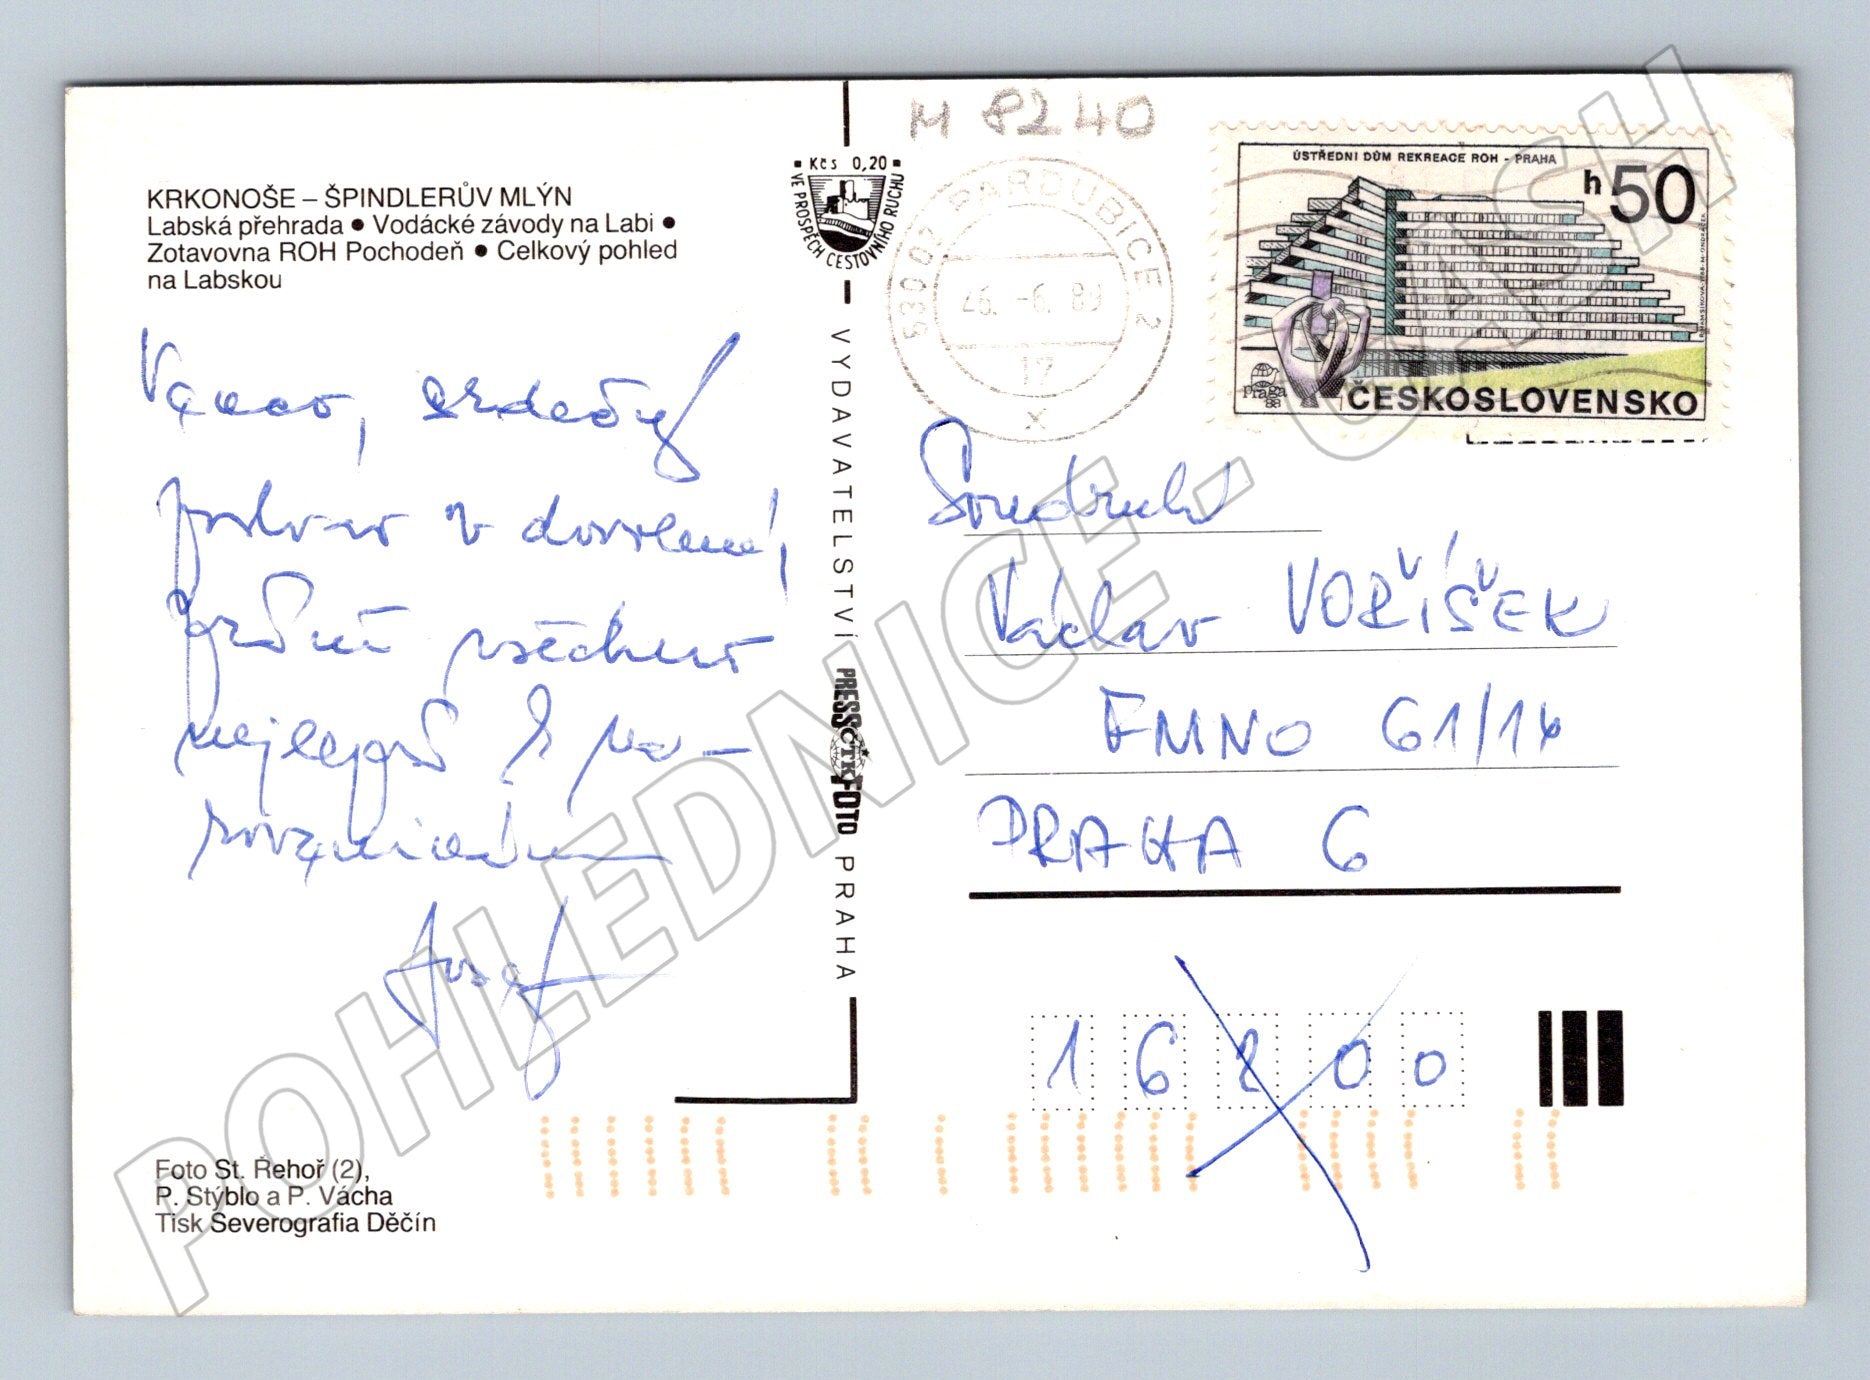 M 8240
KRKONOŠE – ŠPINDLERŮV MLÝN
Labská přehrada ● Vodácké závody na Labi ●
Zotavovna ROH Pochodeň ● Celkový pohled
na Labskou
Kčs 0,20
VE PROSPĚCH CESTOVNÍHO RUCHU
53002 PARDUBICE 2
26. -6. 89
17
x
ÚSTŘEDNÍ DŮM REKREACE ROH - PRAHA
h 50
praga
88
ČESKOSLOVENSKO
srdečný
pozdrav z dovolené,
všechno
nejlepší k na-
rozeninám
Josef
VYDAVATELSTVÍ PRESSFOTO PRAHA
ČTK
Soudruh
Václav VOŘÍŠEK
FMNO 61/14
PRAHA 6
16200
Foto St. Řehoř (2),
P. Stýblo a P. Vácha
Tisk Severografia Děčín
POHLEDNICE.CASH